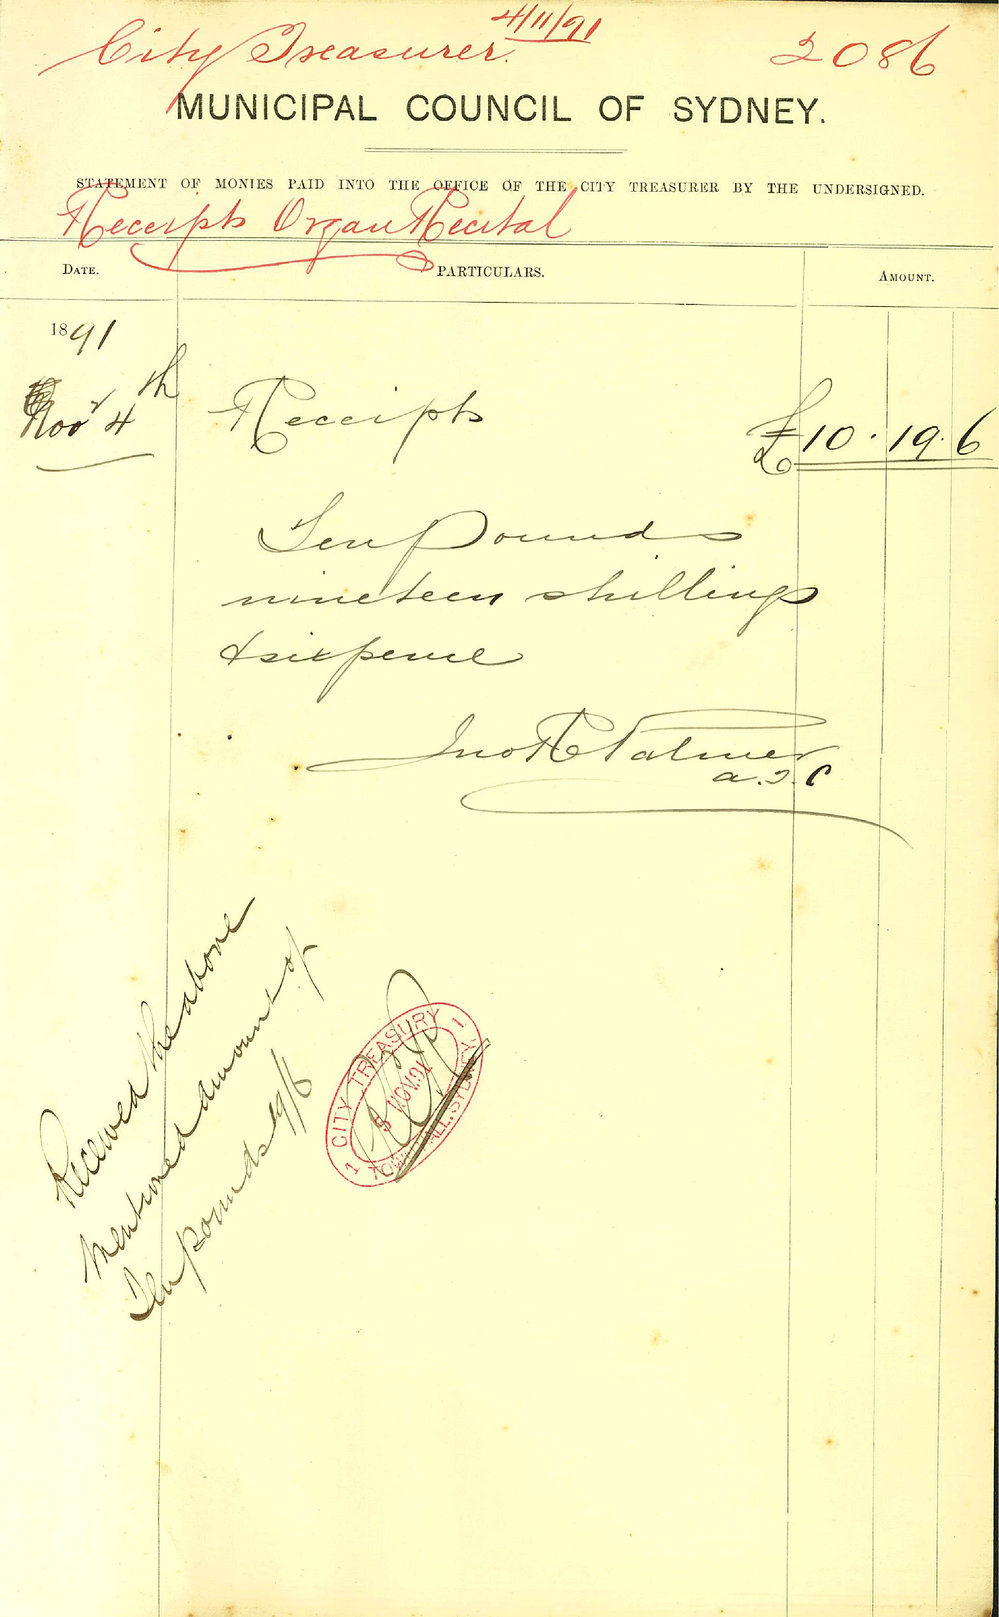 4/11/91
City Treasurer. 2086
MUNICIPAL COUNCIL OF SYDNEY.
STATEMENT OF MONIES PAID INTO THE OFFICE OF THE CITY TREASURER BY THE UNDERSIGNED.
Receipts Organ Recital
DATE. PARTICULARS. AMOUNT.
1891
Novr 4th Receipts £10.19.6
Ten Pounds
nineteen shillings
& sixpence
Jno R Palmer
a.T.C
Received the above
mentioned amount of
Ten pounds 19/6
CITY TREASURY
5 NOV.91
TOWN HALL. SYDNEY.
1 1